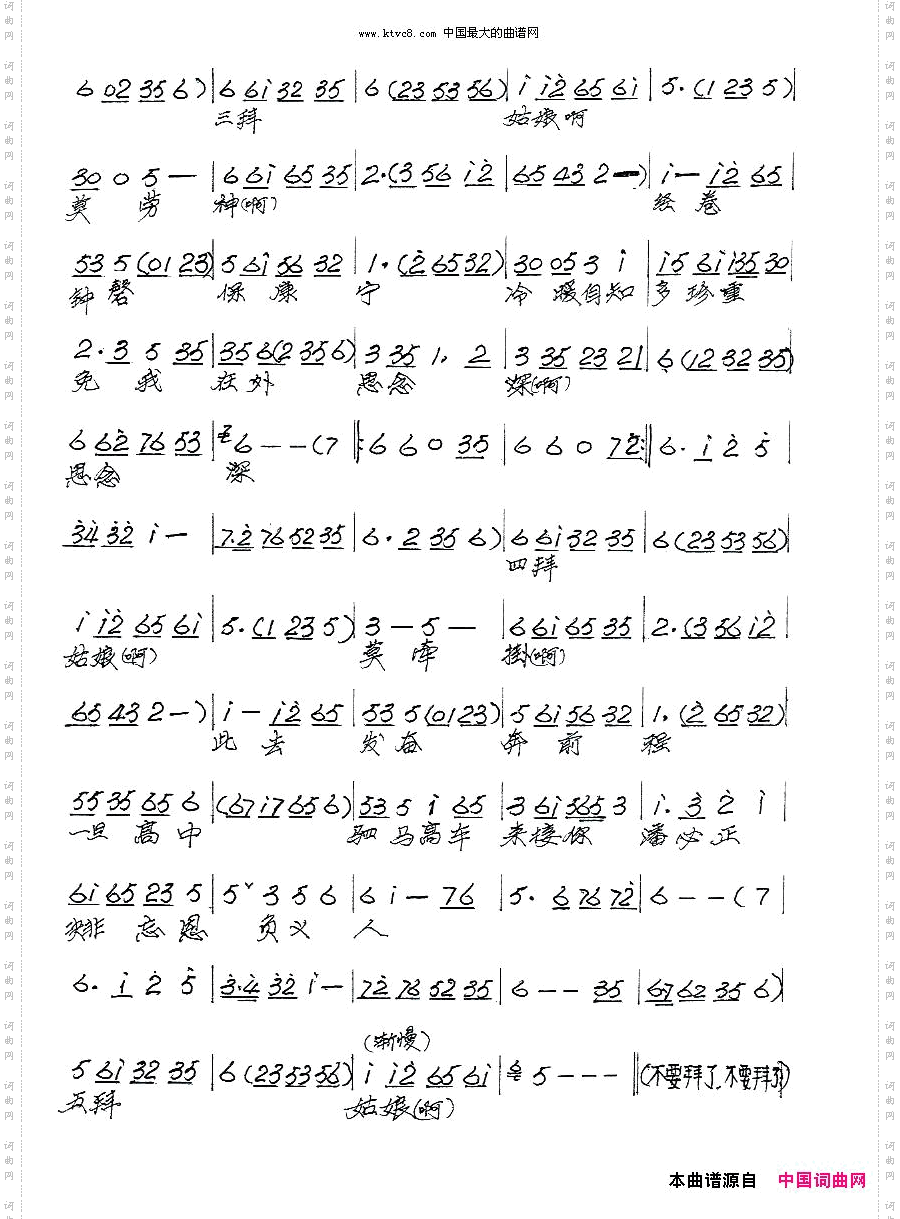 www.ktvc8.com 中国最大的曲谱网
6 02 35 6) | 6 6i 32 35 | 6 (23 53 56) | i i2̇ 65 6i | 5. (1 23 5) |
三拜 姑娘啊
30 0 5 — | 6 6i 65 35 | 2. (3 56 i2̇ | 65 43 2 —) | i — i2̇ 65 |
莫 劳 神(啊) 经 卷
53 5 (01 23) | 5 6i 56 32 | 1. (2̇ 65 32) | 30 05 3 i | i5 6i i35 30 |
钟 磬 保 康 宁 冷 暖自知 多 珍 重
2. 3 5 35 | 35 6 (2 35 6) | 3 35 1. 2 | 3 35 23 21 | 6̣ (12 32 35) |
免 我 在 外 思 念 深(啊)
6 62̇ 76 53 | 6 — — (7 |: 6 6 0 35 | 6 6 0 72̇ :| 6. i 2̇ 5̇ |
思念 深
3̇4̇ 3̇2̇ i — | 7.2̇ 76 52 35 | 6. 2 35 6) | 6 6i 32 35 | 6 (23 53 56) |
四 拜
i i2̇ 65 6i | 5. (1 23 5) | 3 — 5 — | 6 6i 65 35 | 2. (3 56 i2̇ |
姑娘(啊) 莫 牵 掛(啊)
65 43 2 —) | i — i2̇ 65 | 53 5 (01 23) | 5 6i 56 32 | 1. (2̇ 65 32) |
此 去 发 奋 奔 前 程
55 35 65 6 | (67 i7 65 6) | 53 5 i 65 | 3 6i 565 3 | i. 3̇ 2̇ i |
一旦 高 中 驷 马高车 来接你 潘 必 正
6i 65 23 5 | 5ˇ 3 5 6 | 6 i — 76 | 5. 6 76 72̇ | 6 — — (7 |
决非 忘 恩 负 义 人
6. i 2̇ 5̇ | 3̇.4̇ 3̇2̇ i — | 72̇ 76 52 35 | 6 — — 35 | 67 62 35 6) |
(渐慢)
5 6i 32 35 | 6 (23 53 56) | i i2̇ 65 6i | 5 — — — || (不要拜了,不要拜了)
五拜 姑娘(啊)
本曲谱源自 中国词曲网